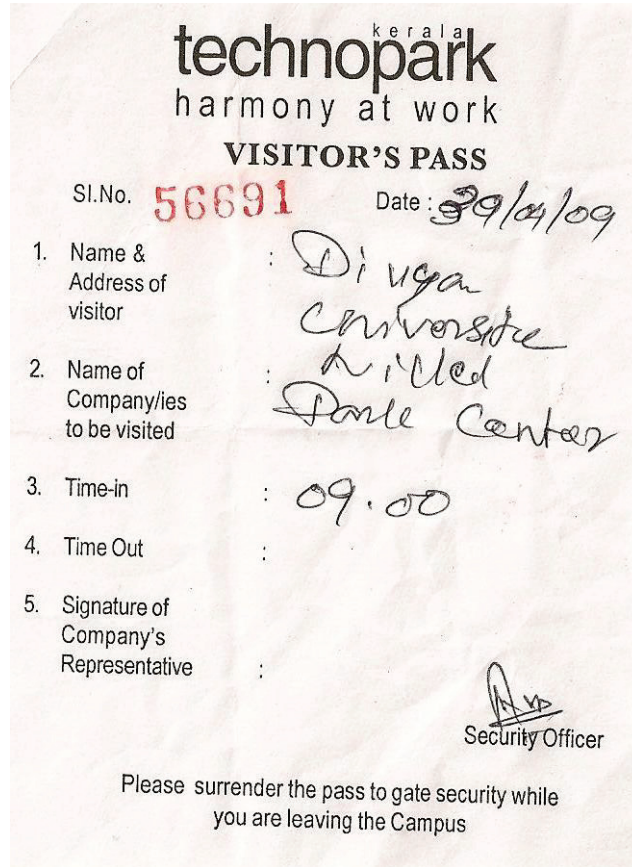 kerala
technopark
harmony at work
VISITOR'S PASS
Sl.No. 56691 Date : 29/04/09
1. Name & Address of visitor : Divya
2. Name of Company/ies to be visited : Park Center
3. Time-in : 09.00
4. Time Out :
5. Signature of Company's Representative :
Security Officer
Please surrender the pass to gate security while
you are leaving the Campus